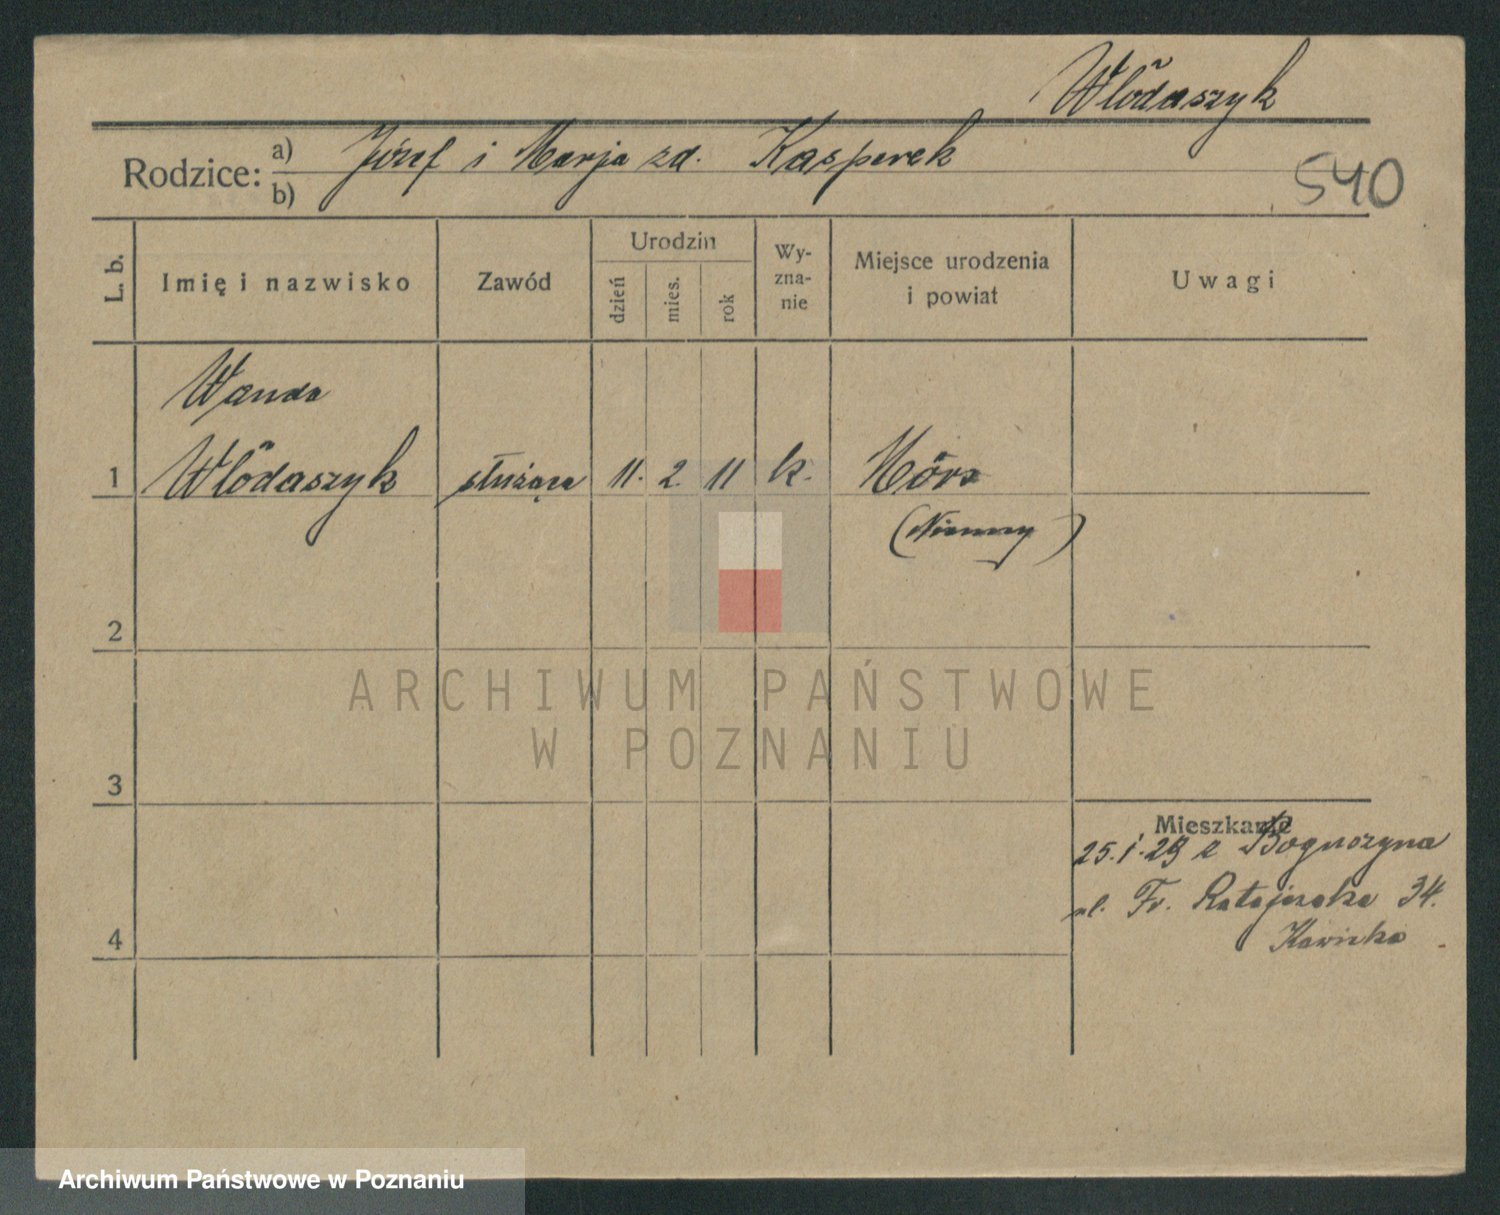 Włódaszyk
Rodzice: a) Józef i Marja zd. Kasperek
b)
540
L. b.
Imię i nazwisko
Zawód
Urodzin
dzień
mies.
rok
Wy-
zna-
nie
Miejsce urodzenia
i powiat
Uwagi
Wanda
1 Włódaszyk służąca 11. 2. 11 k. Mörs
(Niemcy)
2
ARCHIWUM PAŃSTWOWE
W POZNANIU
3
Mieszkanie
25.1.29 z Boguszyna
4 ul. Fr. Ratajczaka 34.
Kawicka
Archiwum Państwowe w Poznaniu